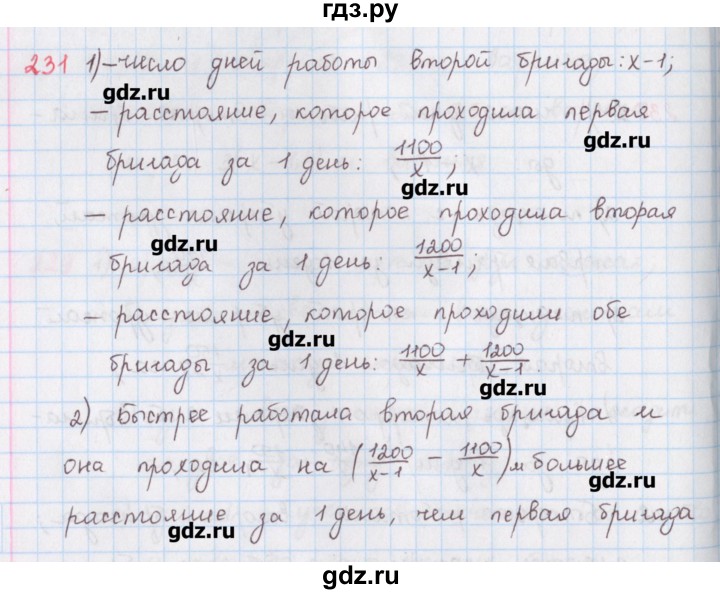 гдз.ру
231 1) – число дней работы второй бригады: x-1;
gdz.ru
– расстояние, которое проходила первая
бригада за 1 день: 1100/x;
gdz.ru
– расстояние, которое проходила вторая
gdz.ru
бригада за 1 день: 1200/x-1;
– расстояние, которое проходили обе
gdz.ru
бригады за 1 день: 1100/x + 1200/x-1
gdz.ru
2) Быстрее работала вторая бригада и
она проходила на (1200/x-1 - 1100/x) м большее
gdz.ru
расстояние за 1 день, чем первая бригада
gdz.ru
gdz.ru